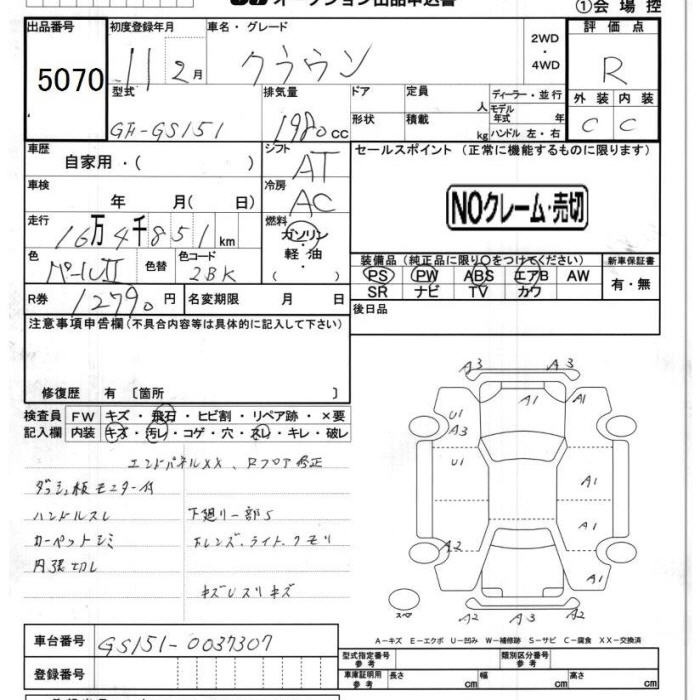 オークション出品申込書
①会場控
出品番号 初度登録年月 車名・グレード 2WD・4WD 評価点
5070 11 2月 クラウン R
型式 排気量 ドア 定員 人 ディーラー・並行 外装 内装
GH-GS151 1980cc 形状 積載 kg モデル年式 年 ハンドル 左・右 C C
車歴 自家用・( ) シフト AT セールスポイント (正常に機能するものに限ります)
車検 年 月( 日) 冷房 AC NOクレーム・売切
走行 16万4千851km 燃料 ガソリン・軽油・( )
色 パールII 色替 色コード 2BK
装備品 (純正品に限り○をつけてください) 新車保証書
PS PW ABS エアB AW 有・無
SR ナビ TV カワ
R券 12790円 名変期限 月 日 後日品
注意事項申告欄(不具合内容等は具体的に記入して下さい)
修復歴 有〔箇所 〕
検査員記入欄 FW キズ・飛石・ヒビ割・リペア跡・×要
内装 キズ・汚レ・コゲ・穴・スレ・キレ・破レ
エンドパネルXX、Rフロア修正
ダッシュ板モニター付
ハンドルスレ 下廻り一部S
カーペットシミ 下レンズ・ライト・クモリ
内張切レ
キズUスリキズ
A3 A3
U1 A1
A3
U1 A1
A1
A2 A1
スペア
A2 A3 A2
A-キズ E-エクボ U-凹み W-補修跡 S-サビ C-腐食 XX-交換済
車台番号 GS151-0037307
型式指定番号 参考 類別区分番号 参考
登録番号
車庫証明用 参考 長さ cm 幅 cm 高さ cm